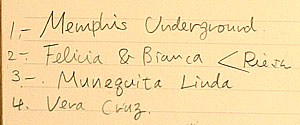 1,- Memphis Underground.
2-. Felicia & Bianca < Riesa
3-. Munequita Linda
4. Vera Cruz.